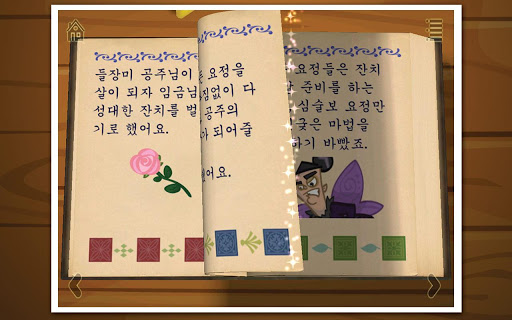 들장미 공주님이
살이 되자 임금님
성대한 잔치를 벌
기로 했어요.
요정을
없이 다
공주의
되어줄
했어요.
요정들은 잔치
준비를 하는
심술보 요정만
궂은 마법을
하기 바빴죠.